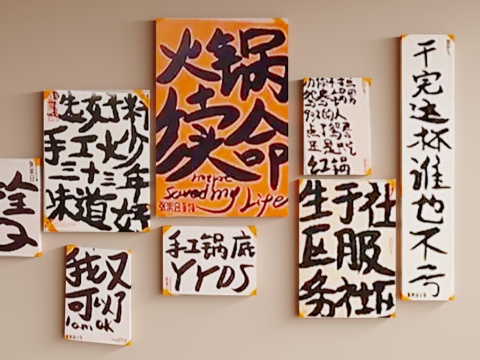 选好料
手工炒
三十三年
味道好
火锅
续命
saved my Life
点了鸳鸯
红锅
干完这杯谁也不亏
我又
可以了
I am OK
手工锅底
YYDS
生于社
区服
务社区